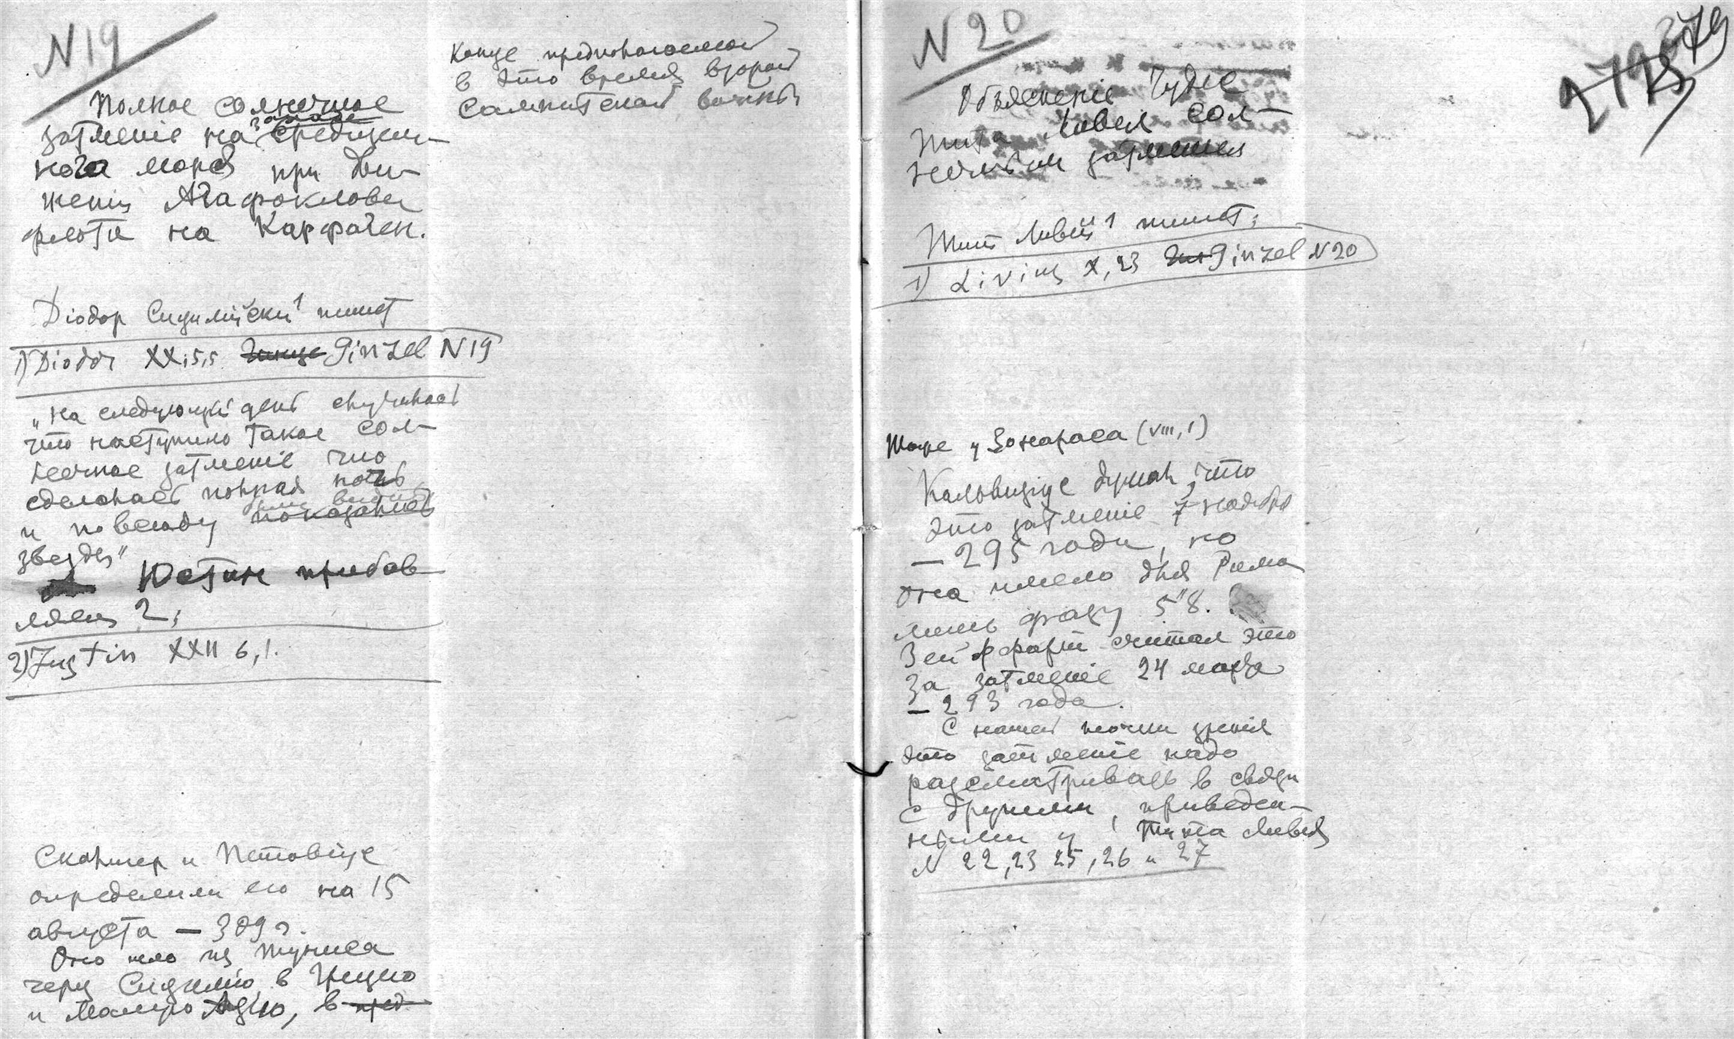 N19
Полное солнечное
западе
затменіе на Средизем-
нога моря при дви-
женіи Агафоклова
флота на Карфаген.
Діодор Сицилійскій 1 пишет
1) Diodor XX,5,5 Ginzel N19
„на следующій день случилось
что наступило такое сол-
нечное затменіе что
сделалась полная ночь,
и повсюду были видны показались
звезды"
Юстин прибав-
ляет 2;
2) Justin XXII 6,1.
Скалигер и Петавіус
определили его на 15
августа — 309 г.
Оно шло из Туниса
через Сицилію в Грецію
и Малую Азію, в пред
конце предполагаемой
в это время второй
Самнитской войны
N 20
Объясненіе Чудес
Тита Ливія сол-
нечным затменіем
Тит Ливій 1 пишет:
1) Livius X,23 Ginzel N20
Тоже у Зонараса (VIII,1)
Кальвизіус думал, что
это затменіе 7 ноября
— 295 года, но
оно имело для Рима
лишь фазу 5"8.
Зейффарт считал это
за затменіе 24 марта
— 293 года.
С нашей точки зрения
это затменіе надо
разсматривать в связи
с другими, приведен-
ными у Тита Ливія
N 22, 23 25, 26 и 27
279